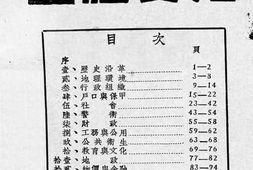 目次
頁
序
壹、歷史沿革 1—2
貳、地理環境 3—8
叁、行政組織 9—14
肆、戶口與保甲 15—22
伍、社會 23—42
陸、警衛 43—54
柒、財政 55—58
捌、工務與公用 59—62
玖、公共衛生 63—68
拾、教育與文化 69—76
拾壹、地政 77—82
拾貳、物價與金融 83—94